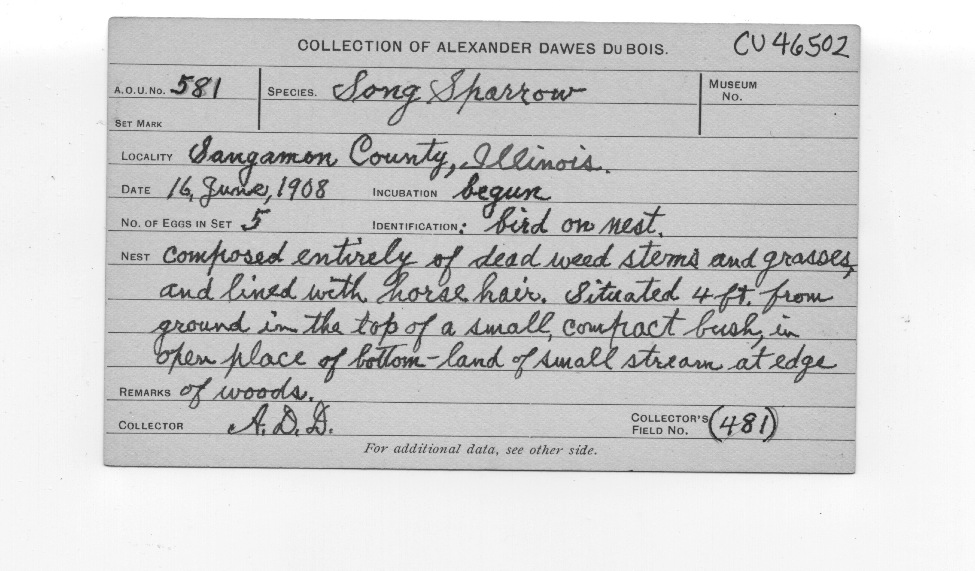 COLLECTION OF ALEXANDER DAWES DU BOIS. CU 46502
A.O.U. No. 581 SPECIES. Song Sparrow MUSEUM No.
SET MARK
LOCALITY Sangamon County, Illinois.
DATE 16, June, 1908 INCUBATION begun
NO. OF EGGS IN SET 5 IDENTIFICATION: bird on nest.
NEST composed entirely of dead weed stems and grasses,
and lined with horse hair. Situated 4 ft. from
ground in the top of a small, compact bush, in
open place of bottom-land of small stream at edge
REMARKS of woods.
COLLECTOR A. D. D. COLLECTOR'S FIELD NO. (481)
For additional data, see other side.